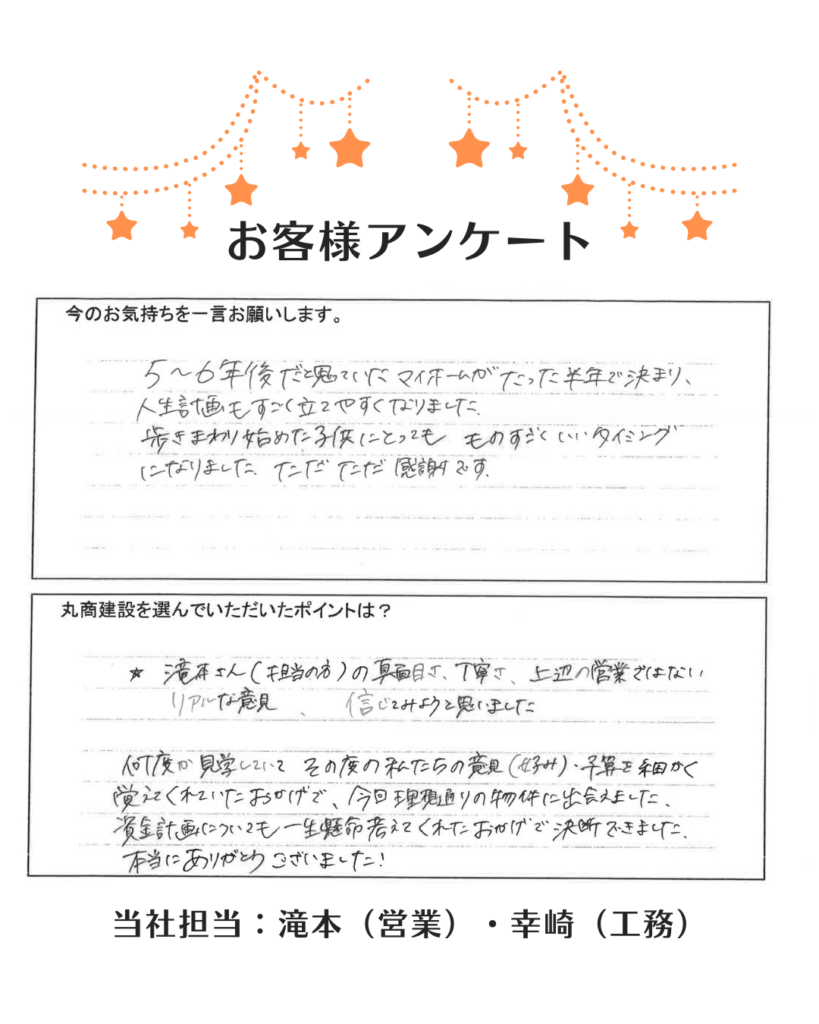 お客様アンケート
今のお気持ちを一言お願いします。
5〜6年後だと思っていたマイホームがたった半年で決まり、
人生計画もすごく立てやすくなりました。
歩きまわり始めた子供にとっても ものすごくいいタイミング
になりました。ただただ感謝です。
丸商建設を選んでいただいたポイントは？
★ 滝本さん(担当の方)の真面目さ、丁寧さ、上辺の営業ではない
リアルな意見、信じてみようと思いました
何度か見学していて その度の私たちの意見(好み)・予算を細かく
覚えてくれていたおかげで、今回理想通りの物件に出会えました。
資金計画についても一生懸命考えてくれたおかげで決断できました。
本当にありがとうございました！
当社担当：滝本（営業）・幸崎（工務）